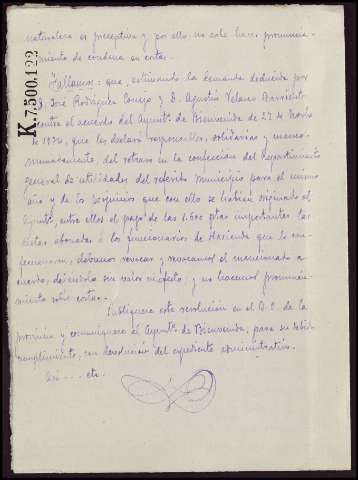 naturaleza es preceptiva y por ello no cabe hacer pronuncia-
miento de condena en costas.
Fallamos: que, estimando la demanda deducida por
D. José Rodríguez Conejo y D. Agustín Velasco Barriento
contra el acuerdo del Ayuntº. de Bienvenida de 27 de
de 1934, que les declaró responsables, solidarios y manco-
munadamente, del retraso en la confección del Repartimiento
general de utilidades del referido Municipio para el mismo
año y de los perjuicios que con ello se habían originado al
Ayuntº, entre ellos el pago de las 1.600 ptas importantes las
dietas abonadas a los funcionarios de Hacienda que lo con-
feccionaron, debemos revocar y revocamos el mencionado a-
cuerdo, dejándolo sin valor ni efecto; y no hacemos pronuncia-
miento sobre costas.
Publíquese esta resolución en el B. O. de la
provincia y comuníquese al Ayuntº. de Bienvenida, para su debido
cumplimiento, con devolución del expediente administrativo.
Así ... etc.
K.7.500.122